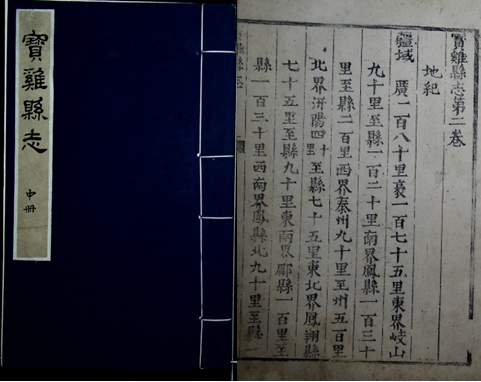 寶雞縣志
中冊
寶雞縣志第二卷
地紀
疆域 廣二百八十里袤一百七十五里東界岐山
九十里至縣一百二十里南界鳳縣一百三十
里至縣二百里西界秦州九十里至州五百里
北界汧陽四十里至縣七十五里東北界鳳翔縣
七十五里至縣九十里東南界郿縣一百里至
縣一百三十里西南界鳳縣北九十里至縣